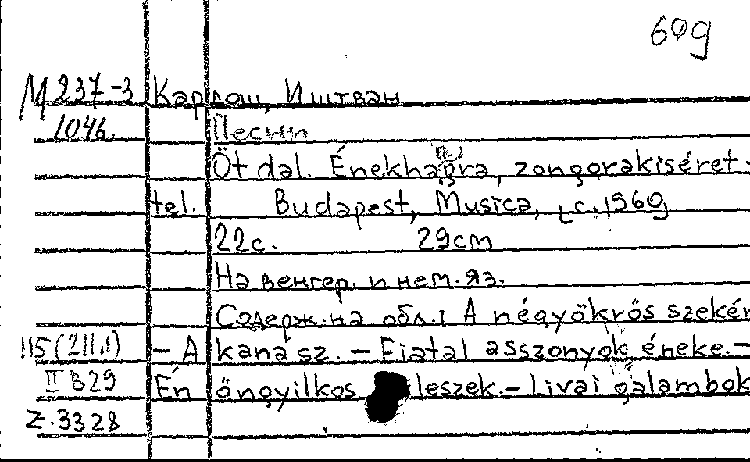 609
М 237-3 Кардош, Иштван
1046. Песни
Öt dal. Énekhangra, zongorakiséret-
tel. Budapest, Musica, c. 1969
22с. 29cm
На венгер. и нем. яз.
Содерж. на обл.: A négyökrös szekér
115(211.1) – A kanász. – Fiatal asszonyok éneke. –
II В29 Én öngyilkos leszek. – Livai galambok
Z. 3328